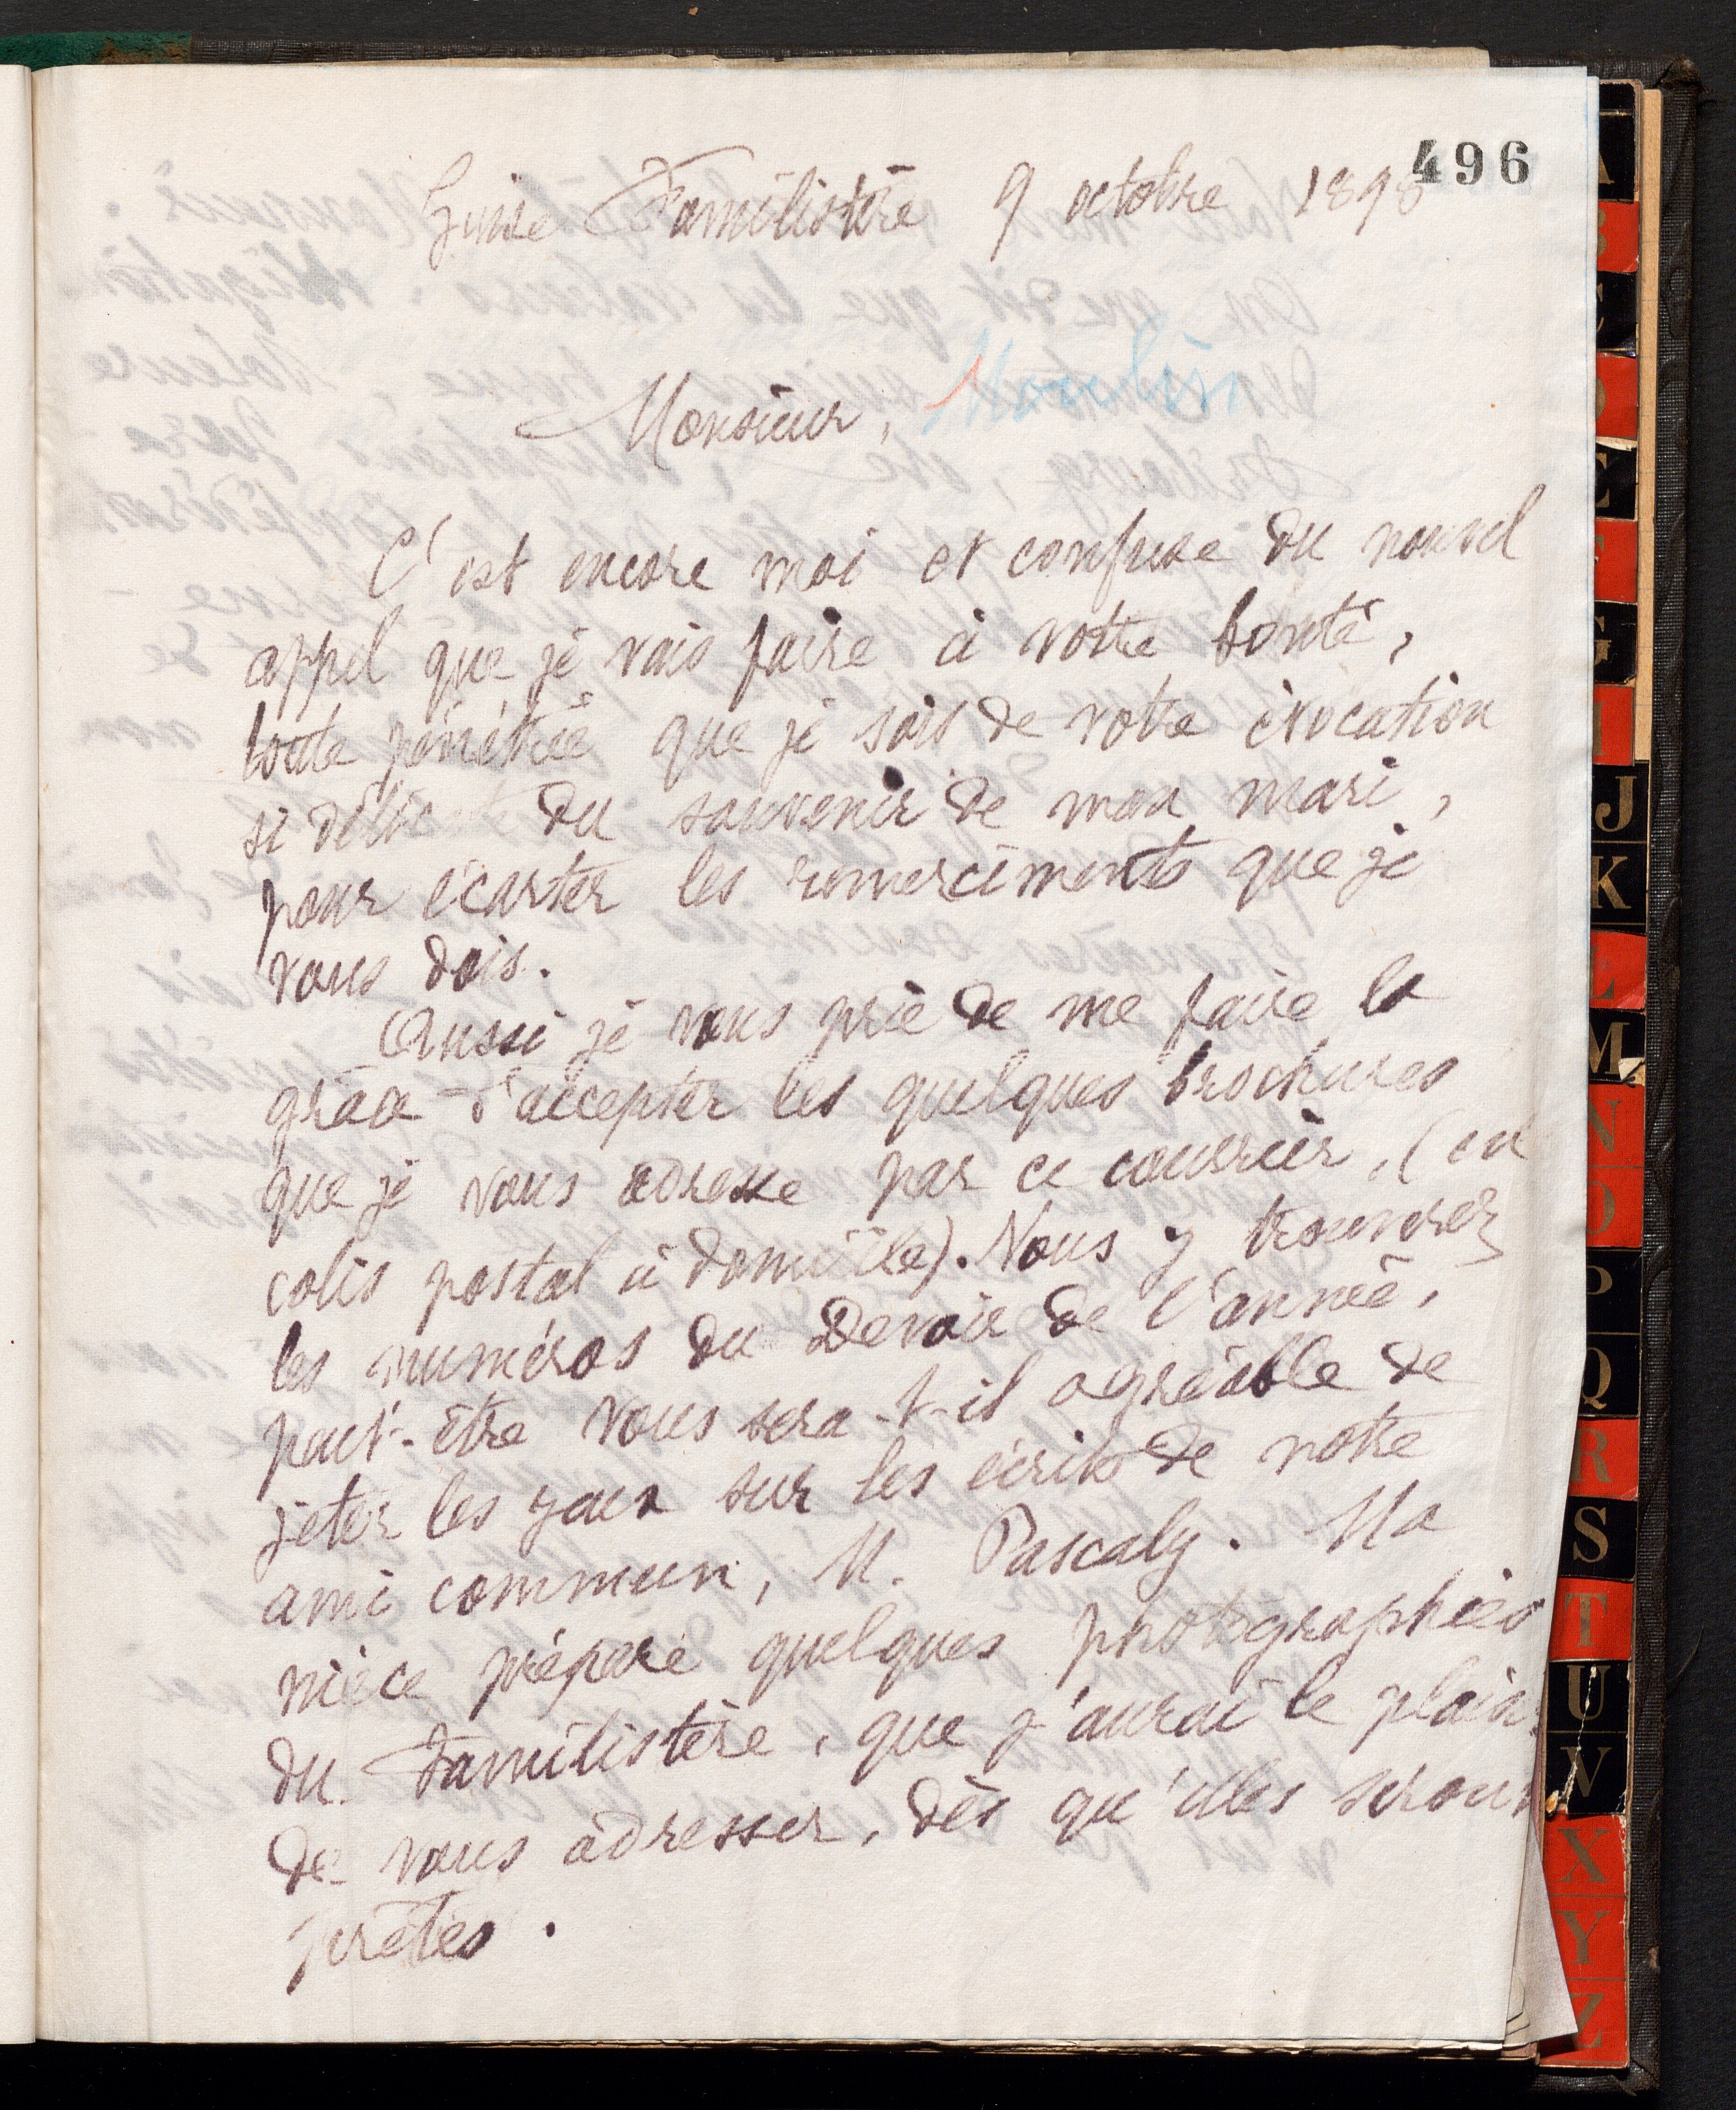 496
Guise Familistère 9 octobre 1898
Monsieur, Moulin
C'est encore moi et confuse du nouvel
appel que je vais faire à votre bonté,
toute pénétrée que je sois de votre évocation
si délic du souvenir de mon mari,
pour écarter les remerciments que je
vous dois.
Aussi je vous prie de me faire la
grâce d'accepter les quelques brochures
que je vous adresse par ce courrier, (en
colis postal à domicile). Vous y trouverez
les numéros du Devoir de l'année,
peut-être vous sera-t-il agréable de
jeter les yeux sur les écrits de notre
ami commun, M. Pascaly. Ma
nièce prépare quelques photographies
du Familistère, que j'aurai le plaisi
de vous adresser, dès qu'elles seront
prêtes.
J
K
M
N
O
P
Q
R
S
T
U
V
X
Y
Z